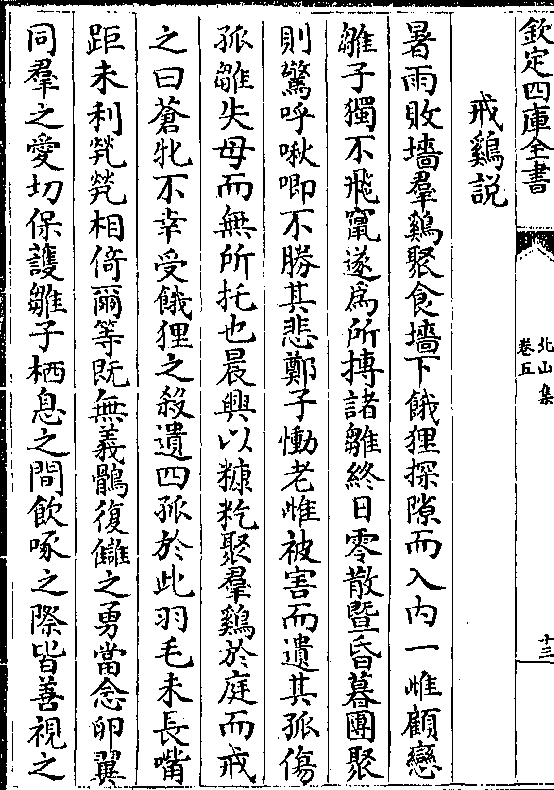 欽定四庫全書
北山集
卷五
十三
戒鷄説
暑雨敗墻羣鷄聚食墻下餓狸探隙而入内一雌顧戀
雛子獨不飛竄遂為所搏諸雛終日零散暨昏暮團聚
則驚呼啾唧不勝其悲鄭子慟老雌被害而遺其孤傷
孤雛失母而無所托也晨興以糠籺聚羣鷄於庭而戒
之曰蒼牝不幸受餓狸之殺遺四孤於此羽毛未長嘴
距未利煢煢相倚爾等既無義鶻復讎之勇當念卵翼
同羣之愛切保護雛子栖息之間飲啄之際皆善視之